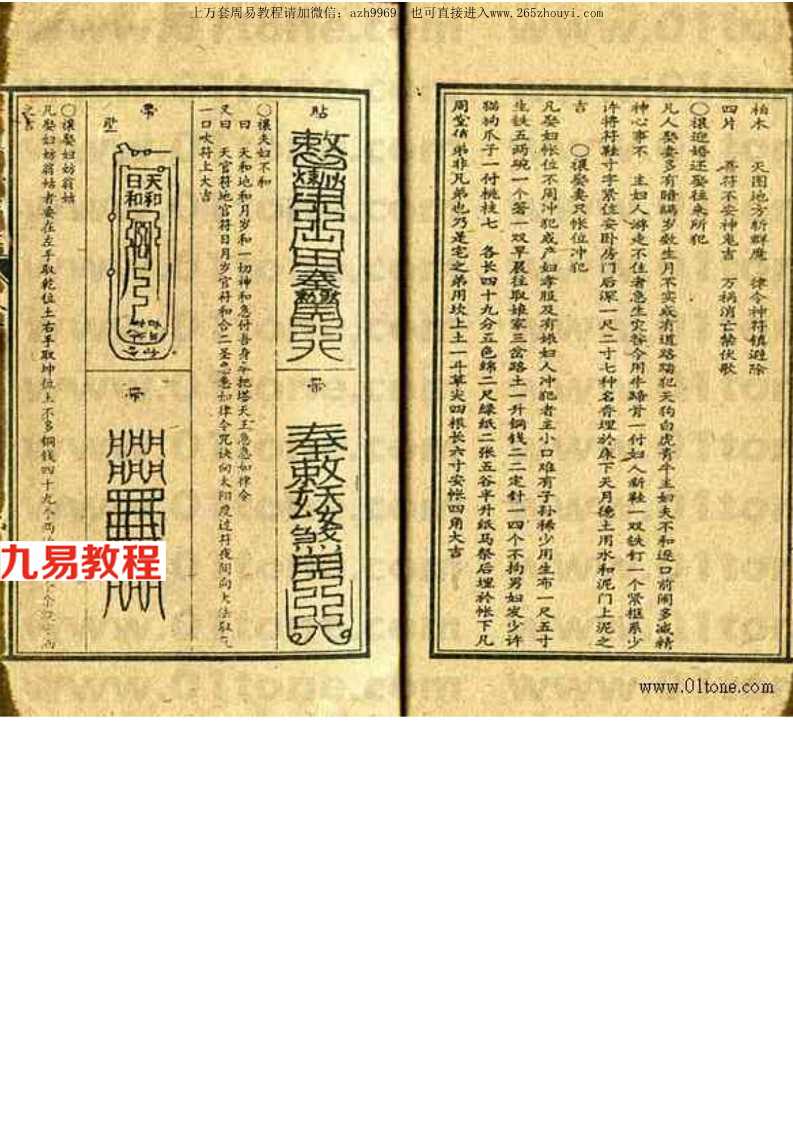 上万套周易教程请加微信：azh9969 也可直接进入www.265zhouyi.com
柏木 天图地方斩群魔 律令神符镇避除
四片 善符不安神鬼吉 万祸消亡禁伏歌
〇禳迎婚还娶往来所犯
凡人娶妻多有暗瞒岁数生月不实或有道路踏犯天狗白虎青牛主妇夫不和逐口前闹多减精
神心事不 主妇人游走不住者急生灾祸今用牛蹄骨一付妇人新鞋一双铁钉一个紧框系少
许将符鞋寸字紧住安卧房门后深一尺二寸七种名香埋於床下天月德土用水和泥门上泥之
吉 〇禳娶妻只帐位冲犯
凡娶妇帐位不周冲犯或产妇孝服及有娠妇人冲犯者主小口难有子孙稀少用生布一尺五寸
生铁五两碗一个箸一双早晨往取娘家三岔路土一升铜钱二二定针一四个不拘男妇发少许
猫狗爪子一付桃枝七 各长四十九分五色绵二尺绿纸二张五谷半升纸马祭后埋於帐下凡
周堂值弟非凡弟也乃是宅之弟用坎上土一斗草尖四根长六寸安帐四角大吉
贴
带
〇禳夫妇不和
曰 天和地和月岁和一切神和急付吾身 把塔天王急急如律令
又曰 天官符地官符日月岁官符和合二圣急急如律令咒诀向太阳度过符夜间向大法取气
一口吹符上大吉
带
壁
天和
日和
带
〇禳娶妇妨翁姑
凡娶妇妨翁姑者要在左手取乾位土右手取坤位土不多铜钱四十九个
之吉
九易教程
www.01tone.com